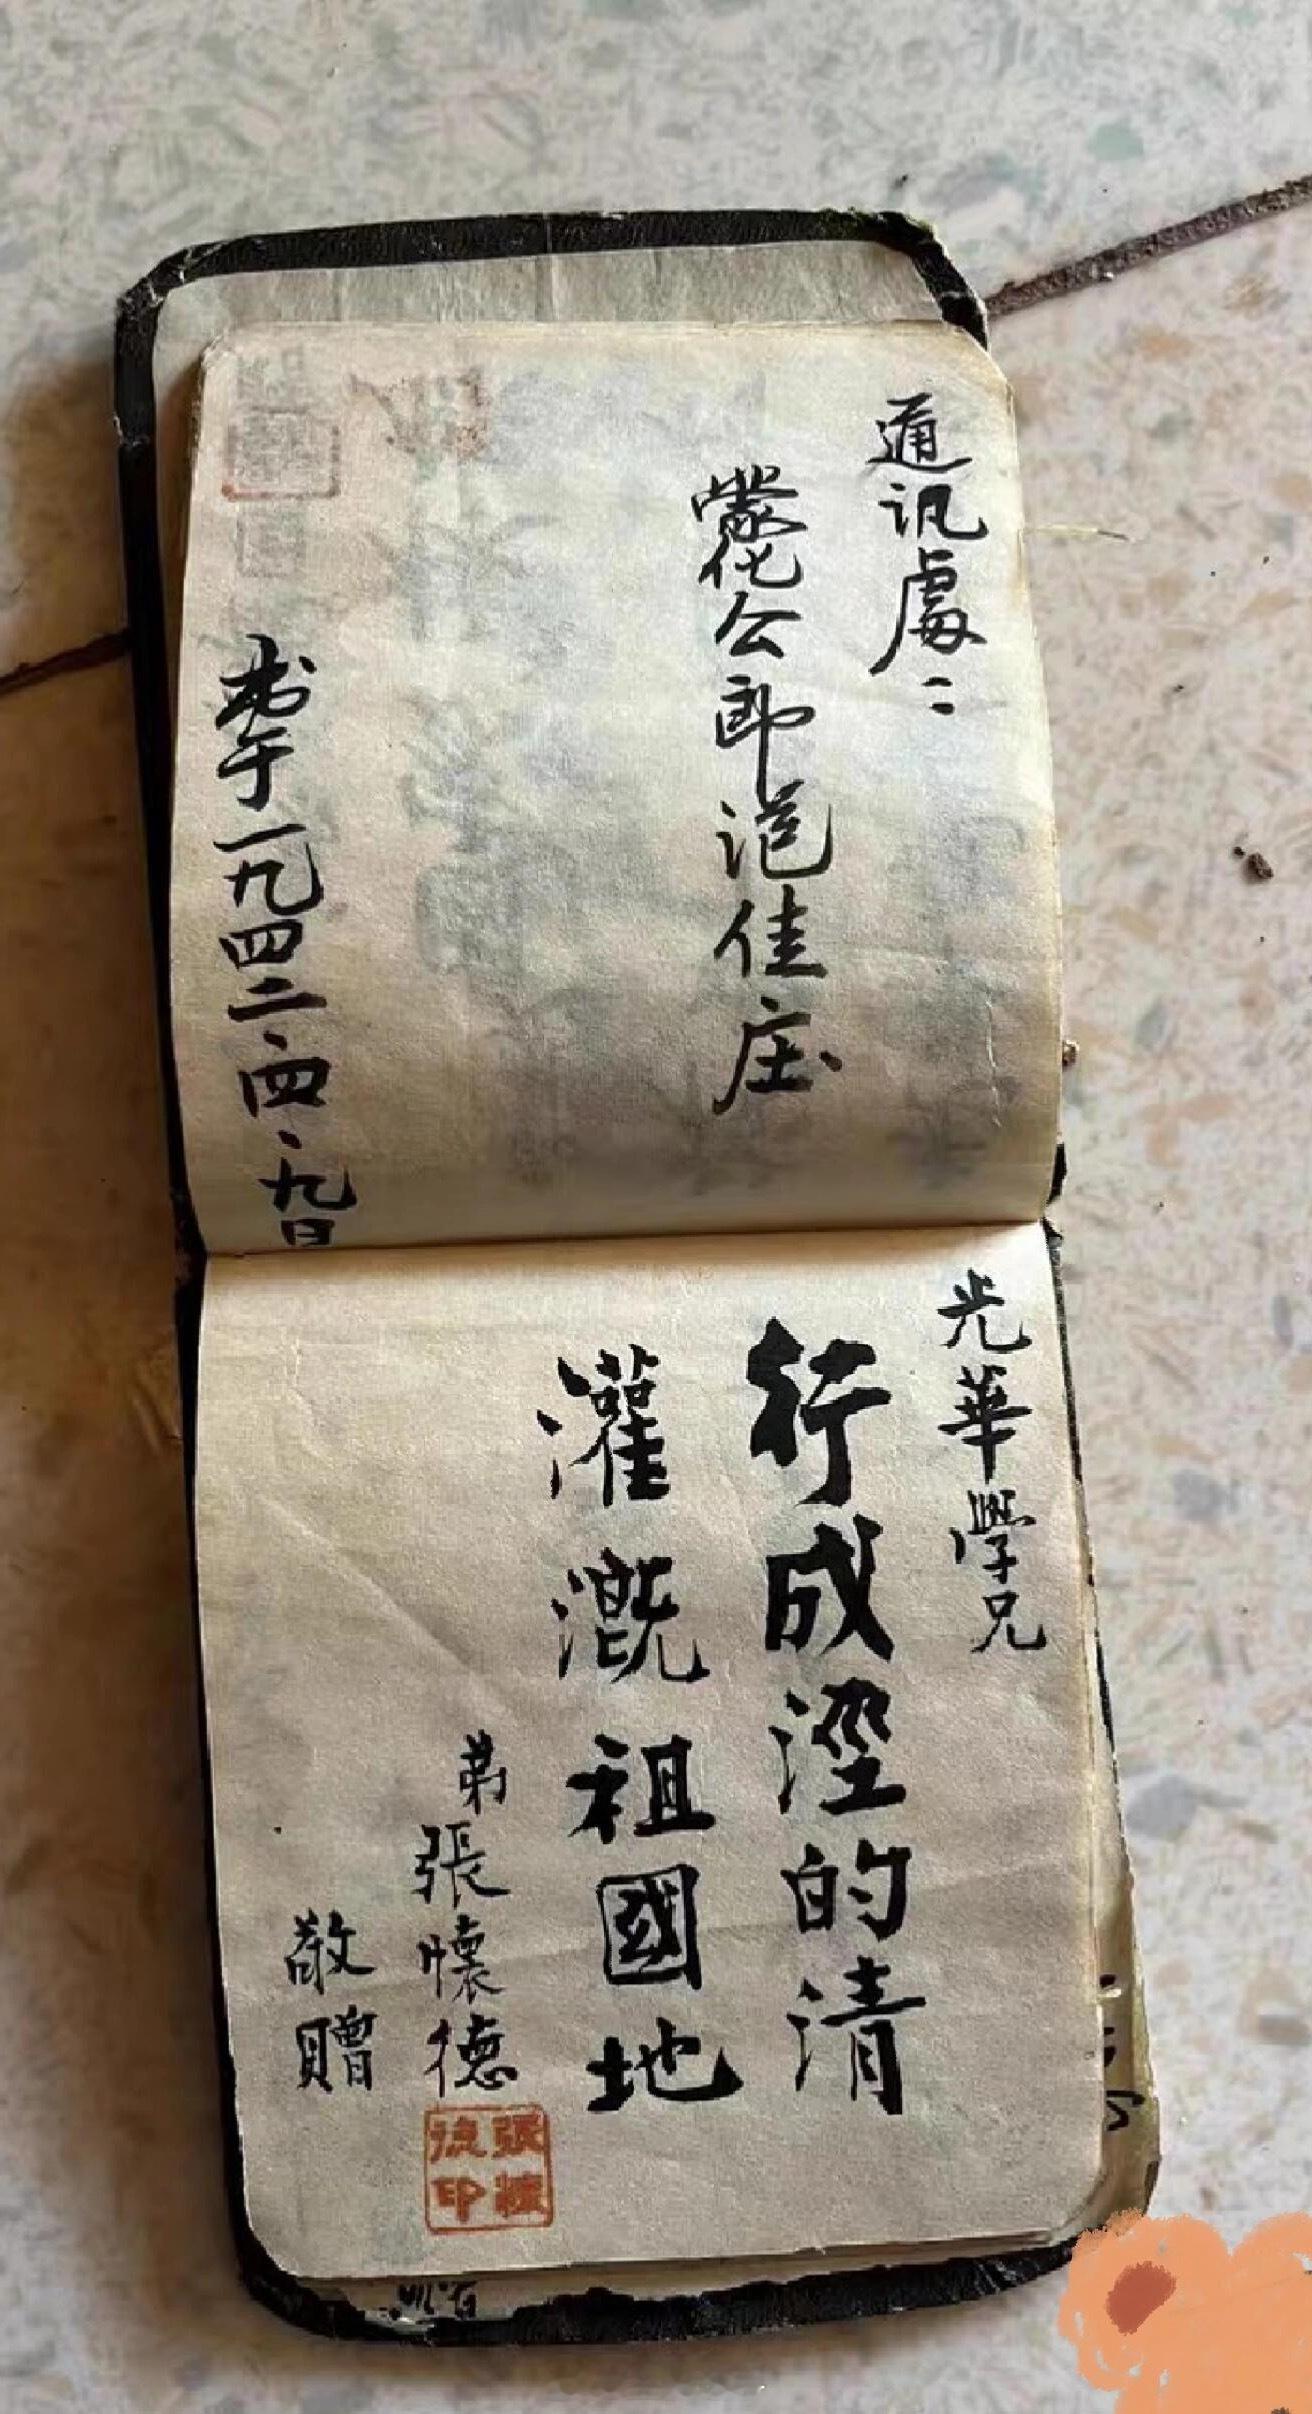 通讯處：
蒙化公郎浥佳庄
书于一九四二·四·九日
光華學兄
行成涇的清
灌溉祖國地
弟張懷德
敬贈
張懷德印